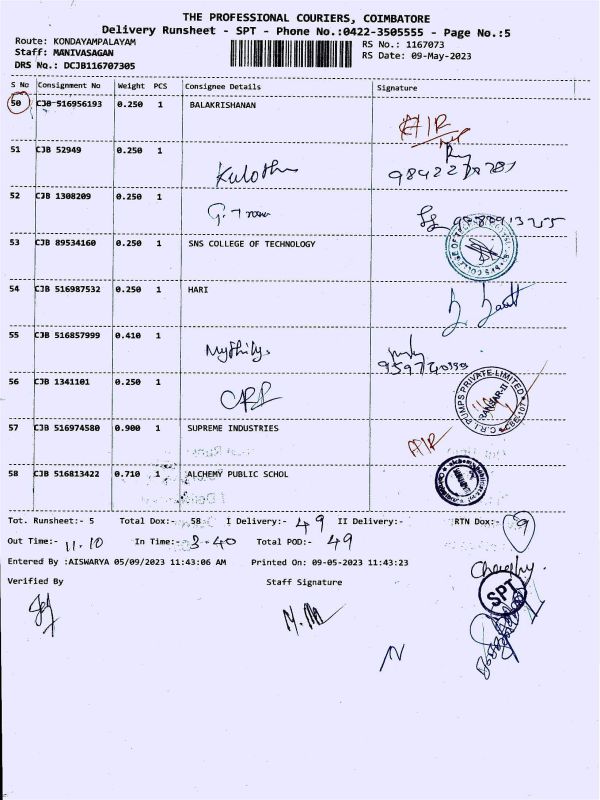 THE PROFESSIONAL COURIERS, COIMBATORE
Delivery Runsheet - SPT - Phone No.:0422-3505555 - Page No.:5
Route: KONDAYAMPALAYAM
RS No.: 1167073
Staff: MANIVASAGAN
RS Date: 09-May-2023
DRS No.: DCJB116707305
S No Consignment No Weight PCS Consignee Details Signature
50 CJB 516956193 0.250 1 BALAKRISHANAN
51 CJB 52949 0.250 1
52 CJB 1308209 0.250 1
53 CJB 89534160 0.250 1 SNS COLLEGE OF TECHNOLOGY
54 CJB 516987532 0.250 1 HARI
55 CJB 516857999 0.410 1
Mythily
56 CJB 1341101 0.250 1
C.R.I. PUMPS PRIVATE LIMITED
57 CJB 516974580 0.900 1 SUPREME INDUSTRIES
58 CJB 516813422 0.710 1 ALCHEMY PUBLIC SCHOL
Tot. Runsheet:- 5 Total Dox:- 58 I Delivery:- 49 II Delivery:- RTN Dox:- 9
Out Time:- 11.10 In Time:- 3-40 Total POD:- 49
Entered By :AISWARYA 05/09/2023 11:43:06 AM Printed On: 09-05-2023 11:43:23
Verified By Staff Signature
SPT